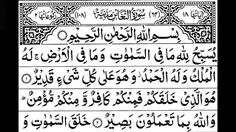 سُوْرَةُ التَّغَابُنِ مَدَنِيَّةٌ (١٠٨)
بِسْمِ اللّٰهِ الرَّحْمٰنِ الرَّحِيْمِ
يُسَبِّحُ لِلّٰهِ مَا فِى السَّمٰوٰتِ وَمَا فِى الْاَرْضِ لَهُ
الْمُلْكُ وَلَهُ الْحَمْدُ وَهُوَ عَلٰى كُلِّ شَىْءٍ قَدِيْرٌ
هُوَ الَّذِىْ خَلَقَكُمْ فَمِنْكُمْ كَافِرٌ وَّمِنْكُمْ مُّؤْمِنٌ
وَاللّٰهُ بِمَا تَعْمَلُوْنَ بَصِيْرٌ خَلَقَ السَّمٰوٰتِ وَ